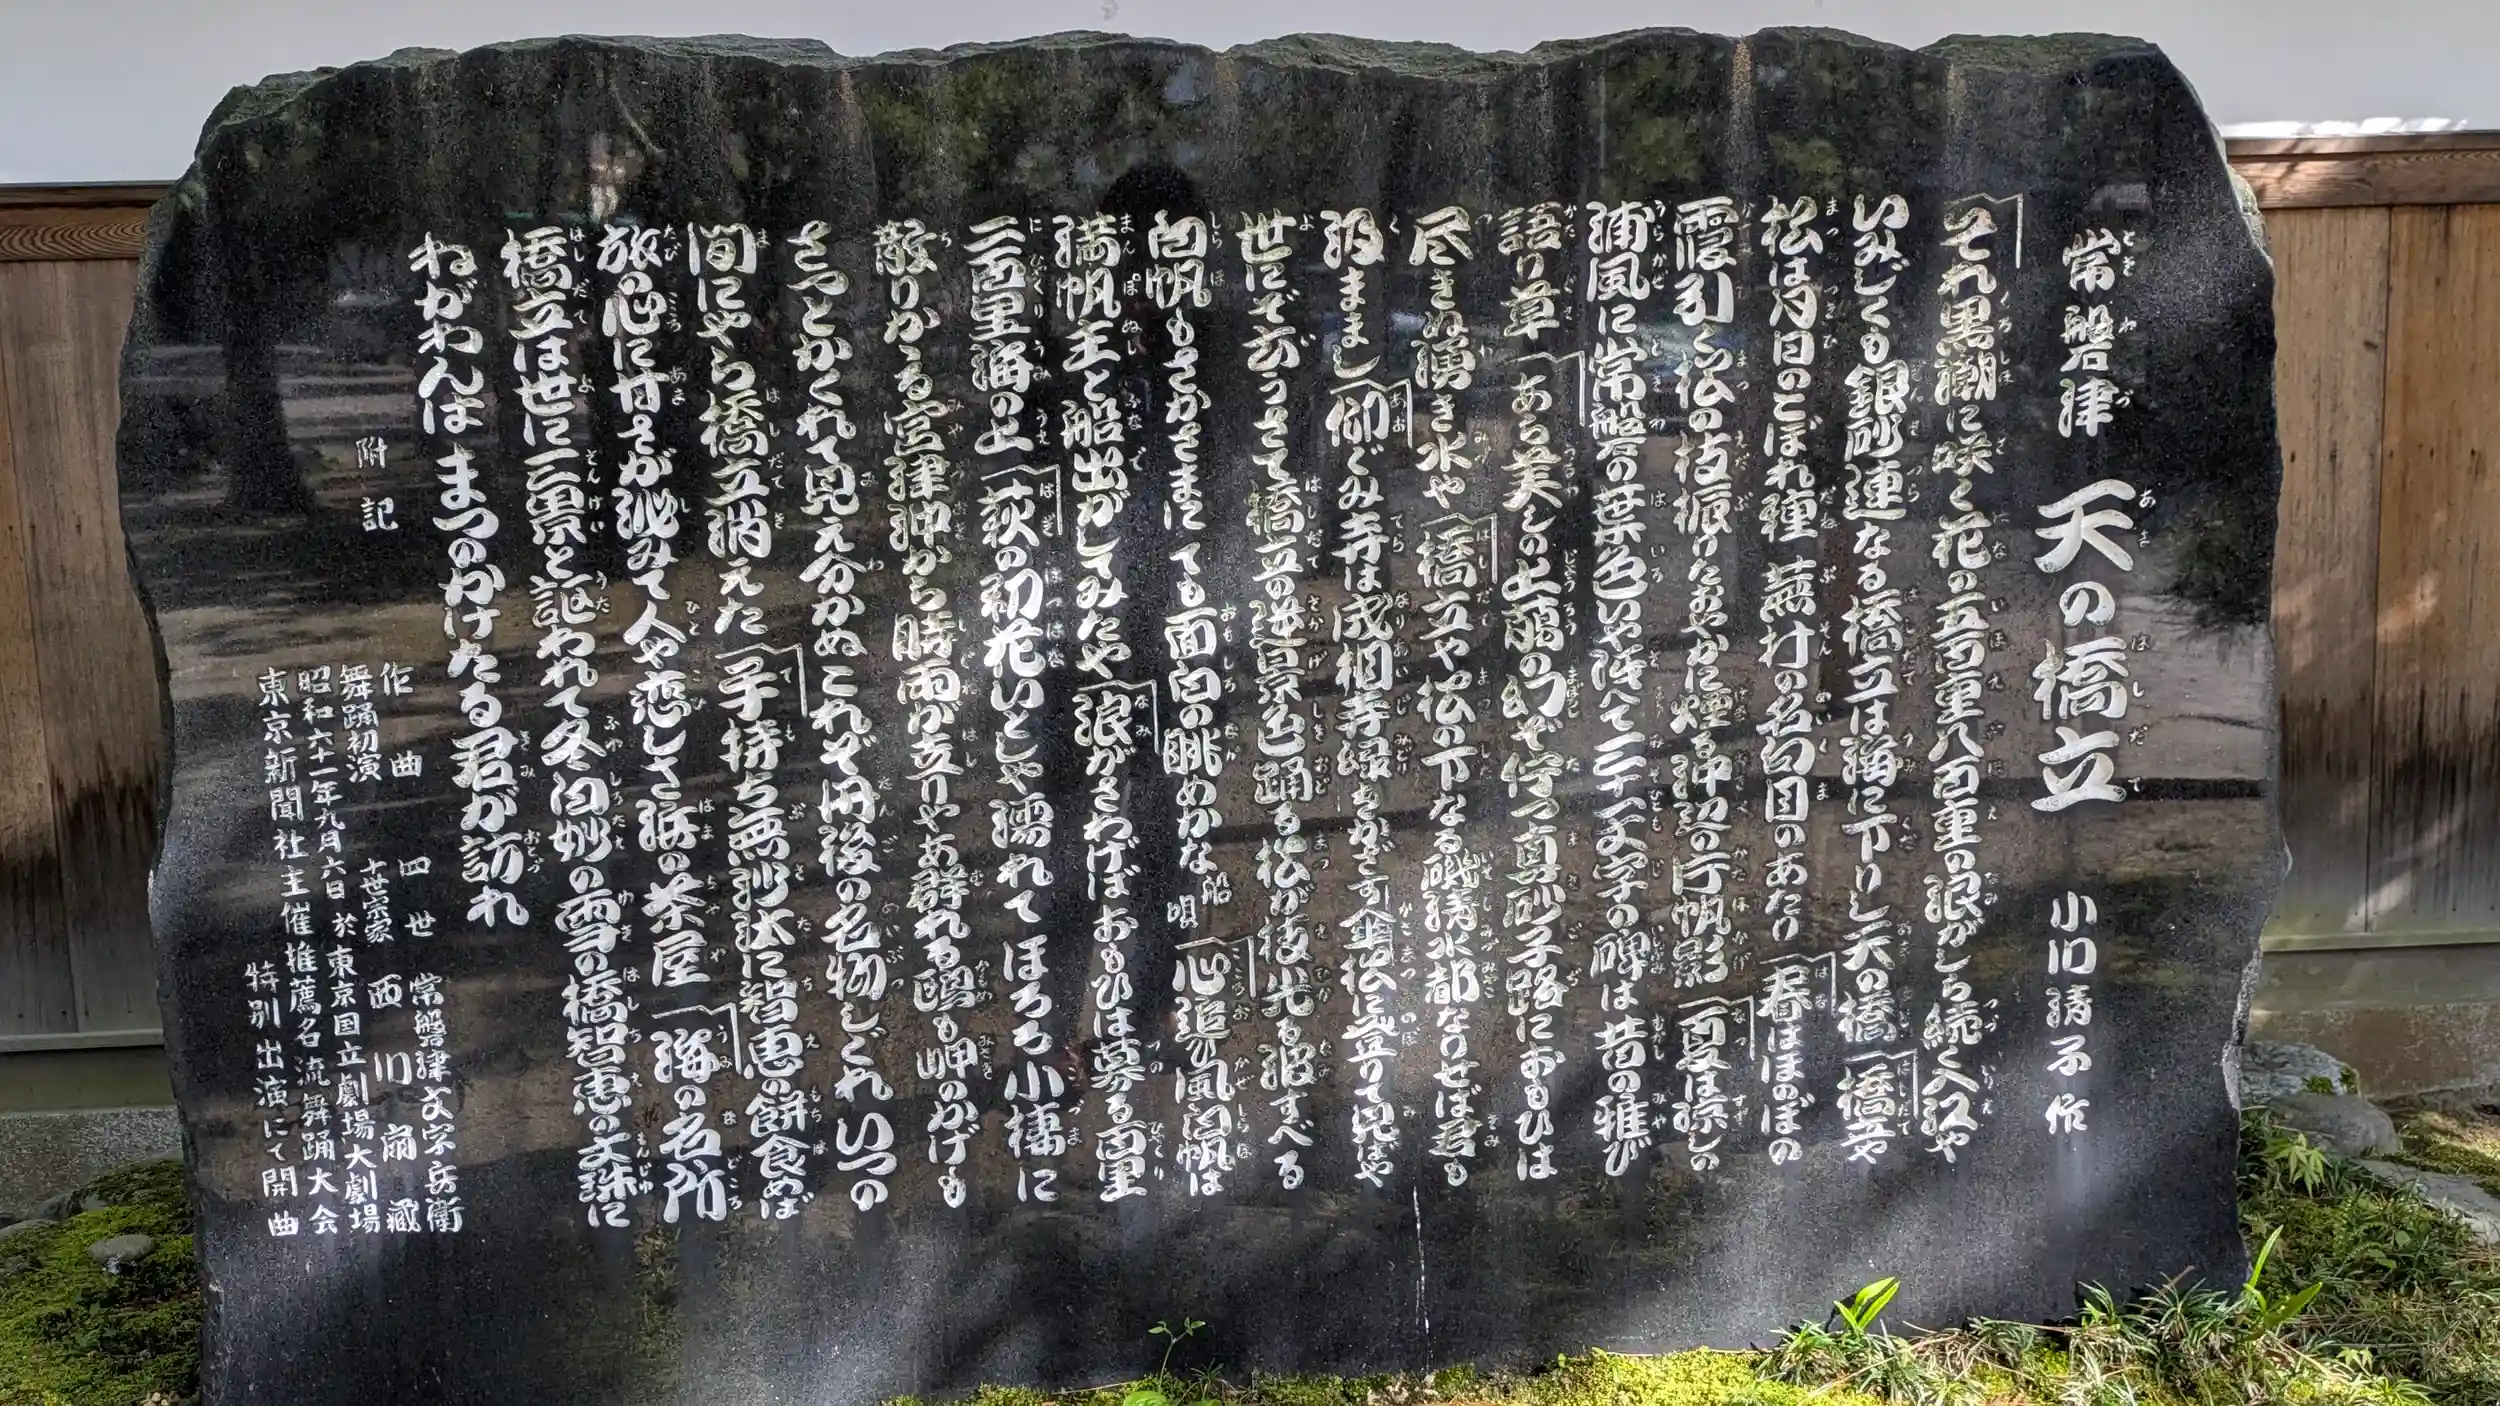 常磐津 天の橋立 小川清子作
それ黒潮に咲く花の五百重八百重の浪がしら続く入江や
いみじくも銀砂連なる橋立は海に下りし天の橋 橋立や
松は月日のこぼれ種 蕪村の名句目のあたり 春はほのぼの
霞引く松の枝振りたおやかに煙る沖辺の片帆影 夏は涼しの
浦風に常磐の葉色いや添へて三十一文字の碑は昔の雅び
語り草 あら美しの上﨟の幻ぞ佇つ真砂子路におもひは
尽きぬ湧き水や 橋立や松の下なる磯清水都なりせば君も
汲ままし 仰ぐみ寺は成相寺緑もかざす傘松に登りて見ばや
世にぞ云うさて橋立の逆景色踊る松が枝先も波すべる
白帆もさかさまにても面白の眺めかな 船唄 心追ひ風白帆は
満帆主と船出がしてみたや 浪がさわげばおもひは募る百里
二百里海の上 萩の初花いとしや濡れてほろろ小褄に
散りかゝる宮津沖から時雨が立りやあ群れる鴎も岬のかげも
さっとかくれて見え分かぬこれぞ丹後の名物しぐれいつの
間にやら橋立消えた 子持ち無沙汰に智恵の餅食めば
旅の心に甘さが泌みて人や恋しさ浜の茶屋 海の名所
橋立は世に三景と謳われて冬白妙の雪の橋智恵の文珠に
ねがわんは まつのかけたる君が訪れ
附記
作曲 四世 常磐津文字兵衛
舞踊初演 十世宗家 西川扇藏
昭和六十一年九月六日 於 東京国立劇場大劇場
東京新聞社主催推薦名流舞踊大会
特別出演にて開曲